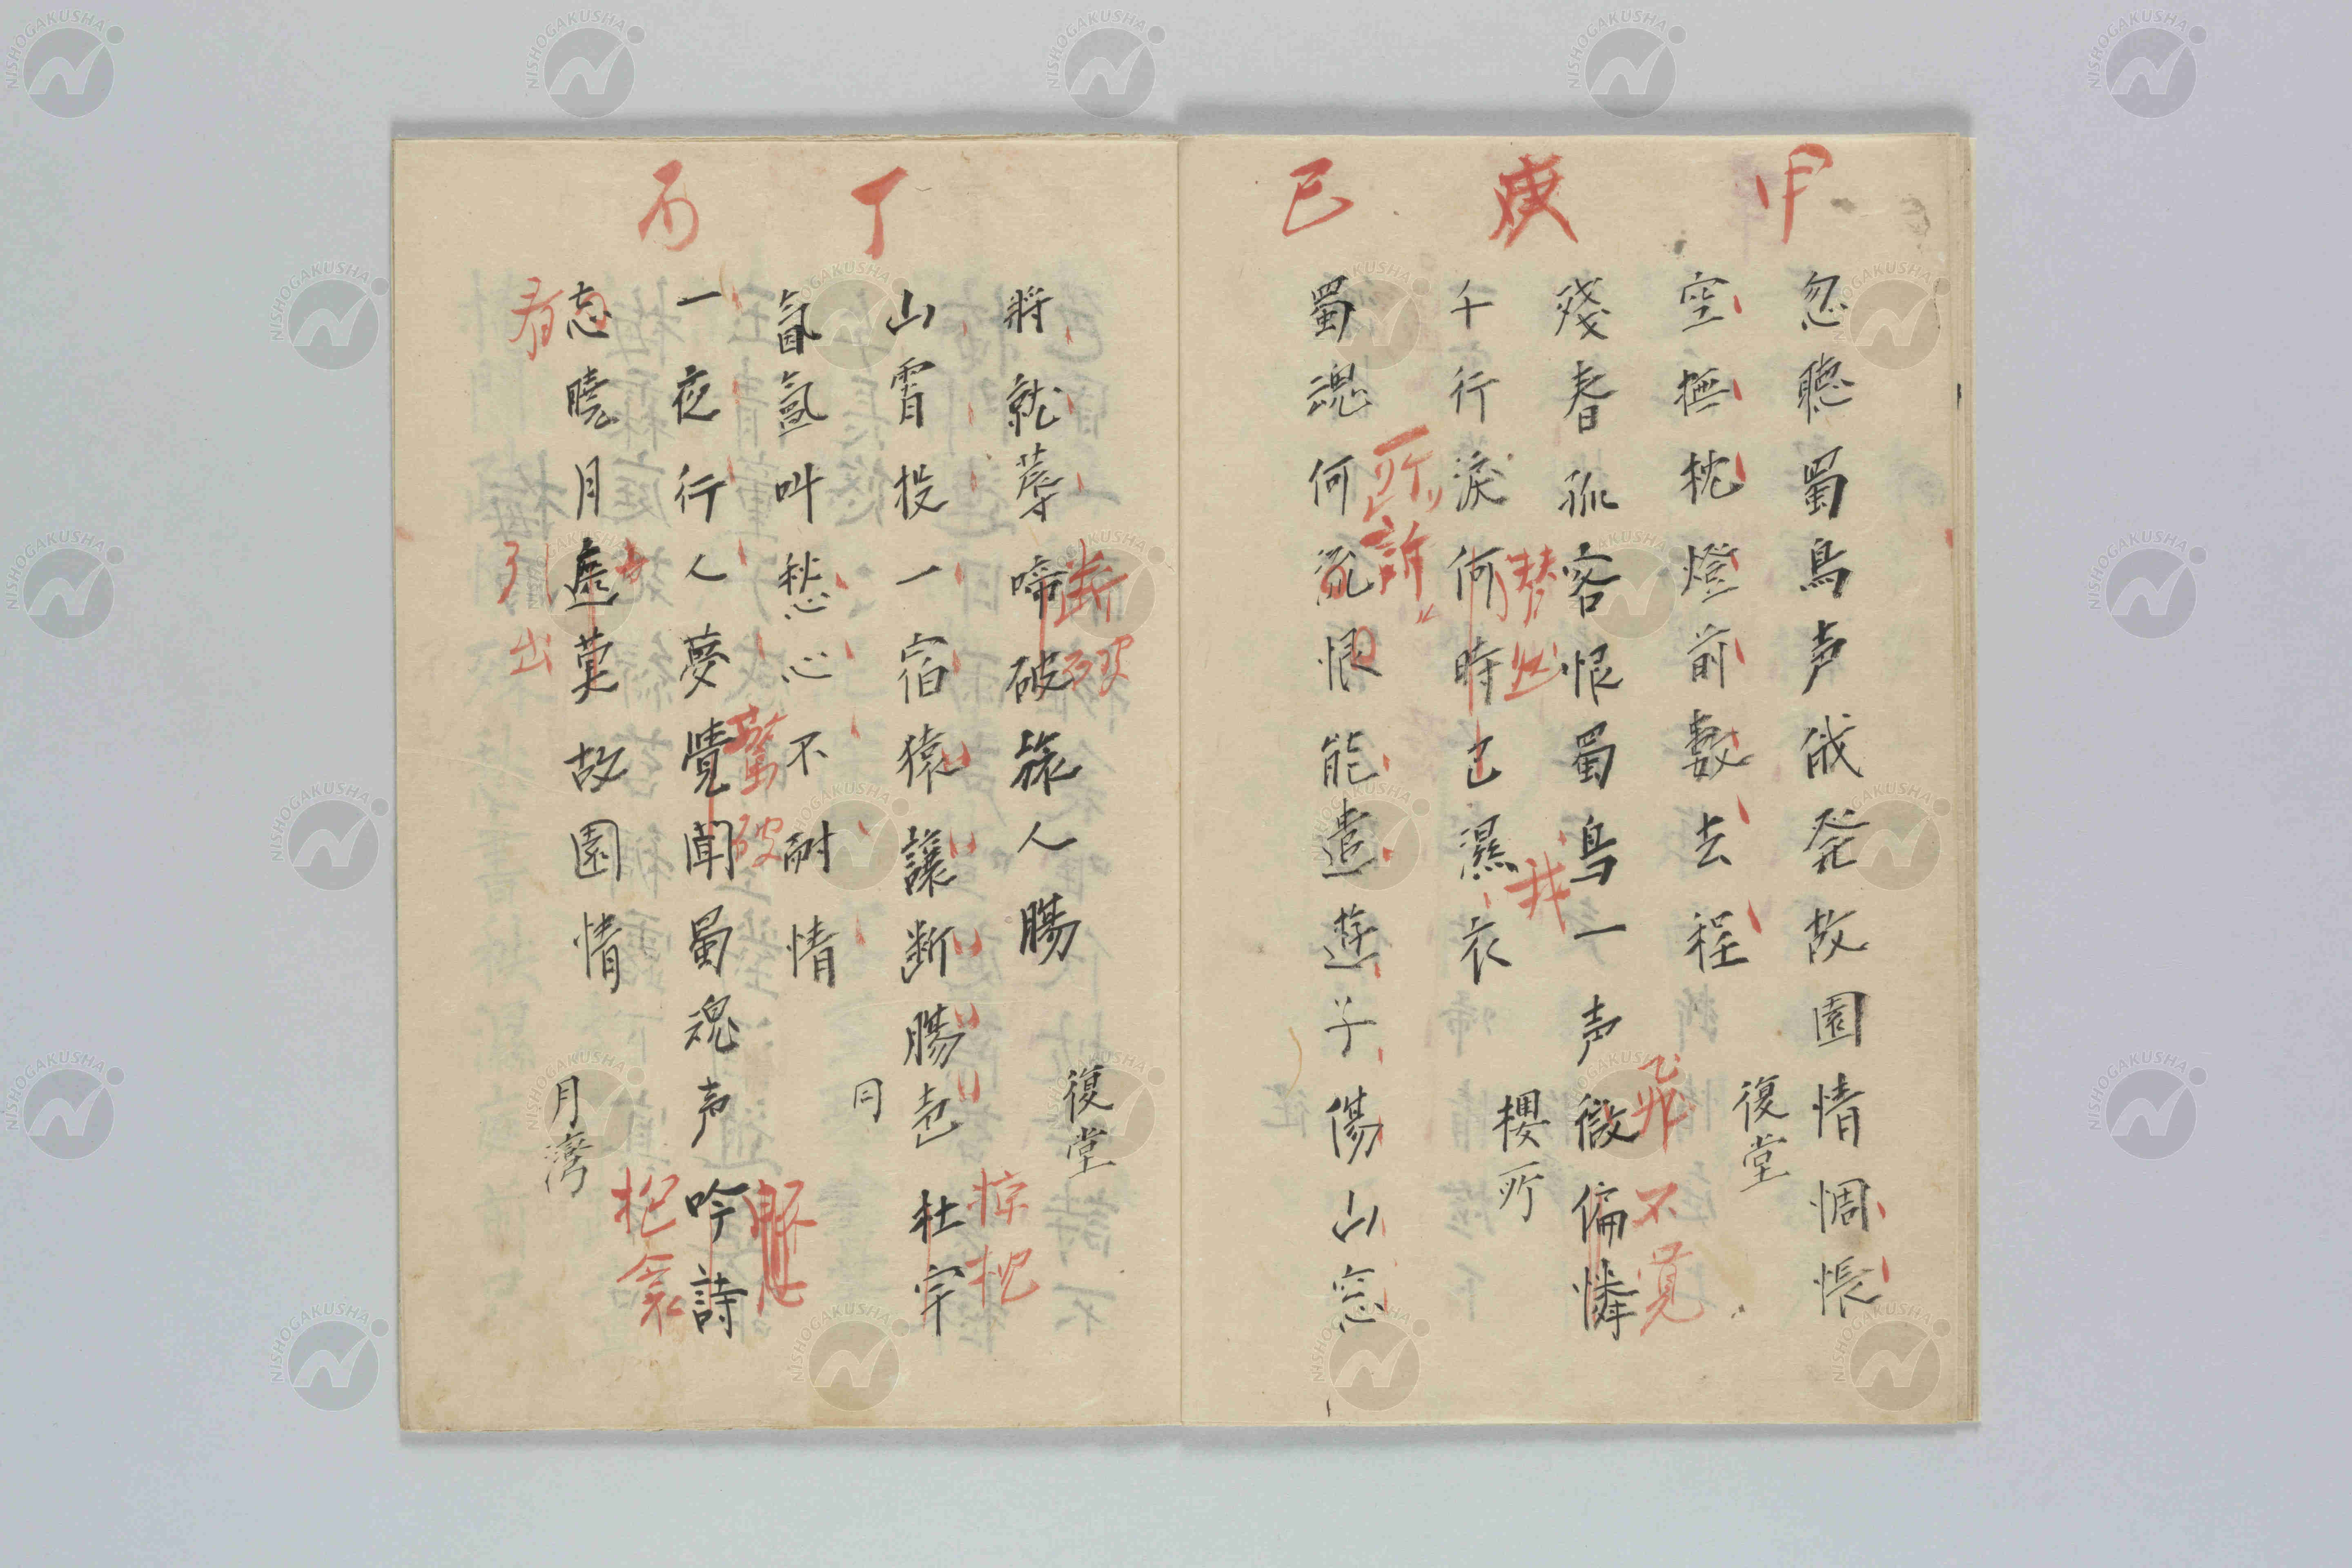 甲
忽聴蜀鳥声俄発故園情惆悵
空撫枕燈前数去程
復堂
庚
残春孤客恨蜀鳥一声微偏憐
飛不覚
我
千行涙何時已濕衣
替
櫻所
己
蜀魂何流恨能遣遊子傷山窓
所訴
將就蓐啼破旅人腸
断破
復堂
丁
山宵投一宿猿讓断腸声杜宇
枕
叫愁心不耐情
同
丙
一夜行人夢覺聞蜀魂声吟詩
驚破
忘曉月遮莫故園情
抱衾
看
引出
月湾
NISHOGAKUSHA